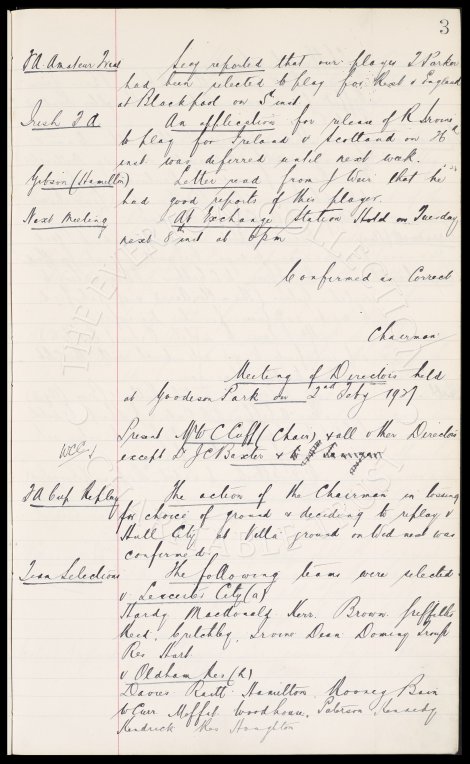 3
F.A. Amateur Trial
Secy reported that our player T Parker
had been selected to play for Rest v England
at Blackpool on 5th inst.
Irish F A
An application for release of R Irvine
to play for Ireland v Scotland on 26th
inst was deferred until next week.
Gibson (Hamilton)
Letter read from J Weir that he
had good reports of this player.
Next Meeting
At Exchange Station Hotel on Tuesday
next 8th inst at 6 pm
Confirmed as Correct
Chairman
Meeting of Directors held
at Goodison Park on 2nd Feby 1927
Present Mr W C Cuff (Chair) & all other Directors
WCC
except Dr J C Baxter &
F A Cup Replay
The action of the Chairman in tossing
for choice of ground & deciding to replay v
Hull City at Villa ground on Wed next was
confirmed.
Team Selections
The following teams were selected
v Leicester City (a)
Hardy Macdonald Kerr. Brown Griffiths
Reid, Critchley, Irvine Dean Dominy Troup
Res Hart
v Oldham Res (h)
Davies Raitt Hamilton, Rooney Bain
Curr Moffat Woodhouse, Peterson, Kennedy
Kendrick Res Houghton